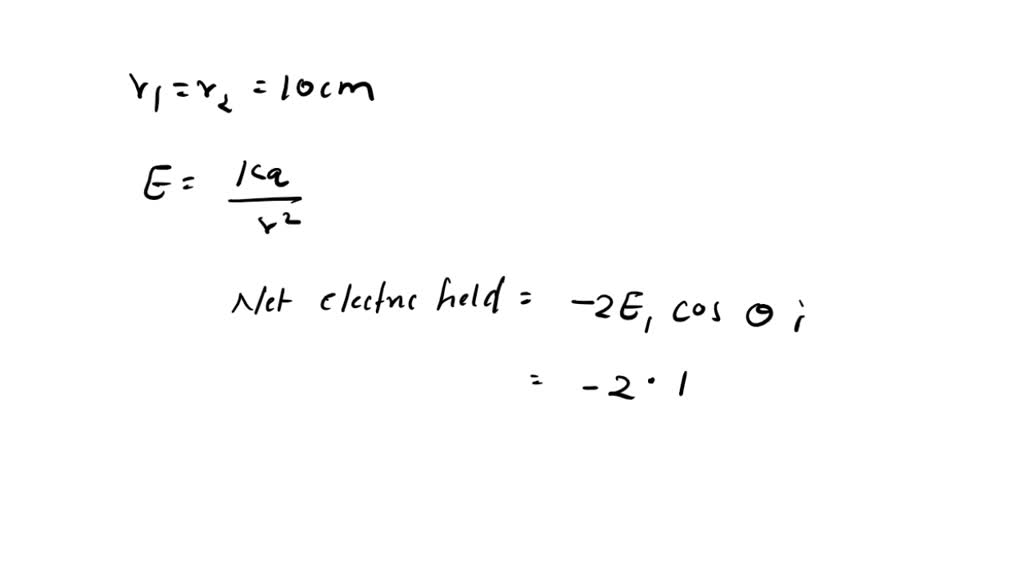 r₁ = r₂ = 10cm
E = Kq / r²
Net electric field = -2E₁ cos θ i
= -2 · 1